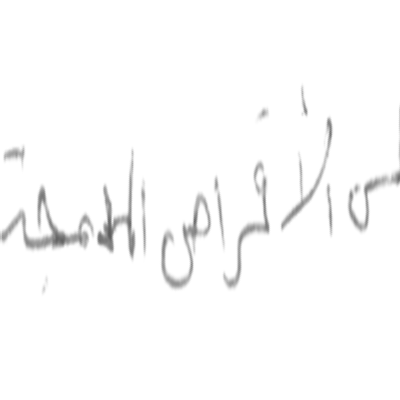 الأقراص المدمجة